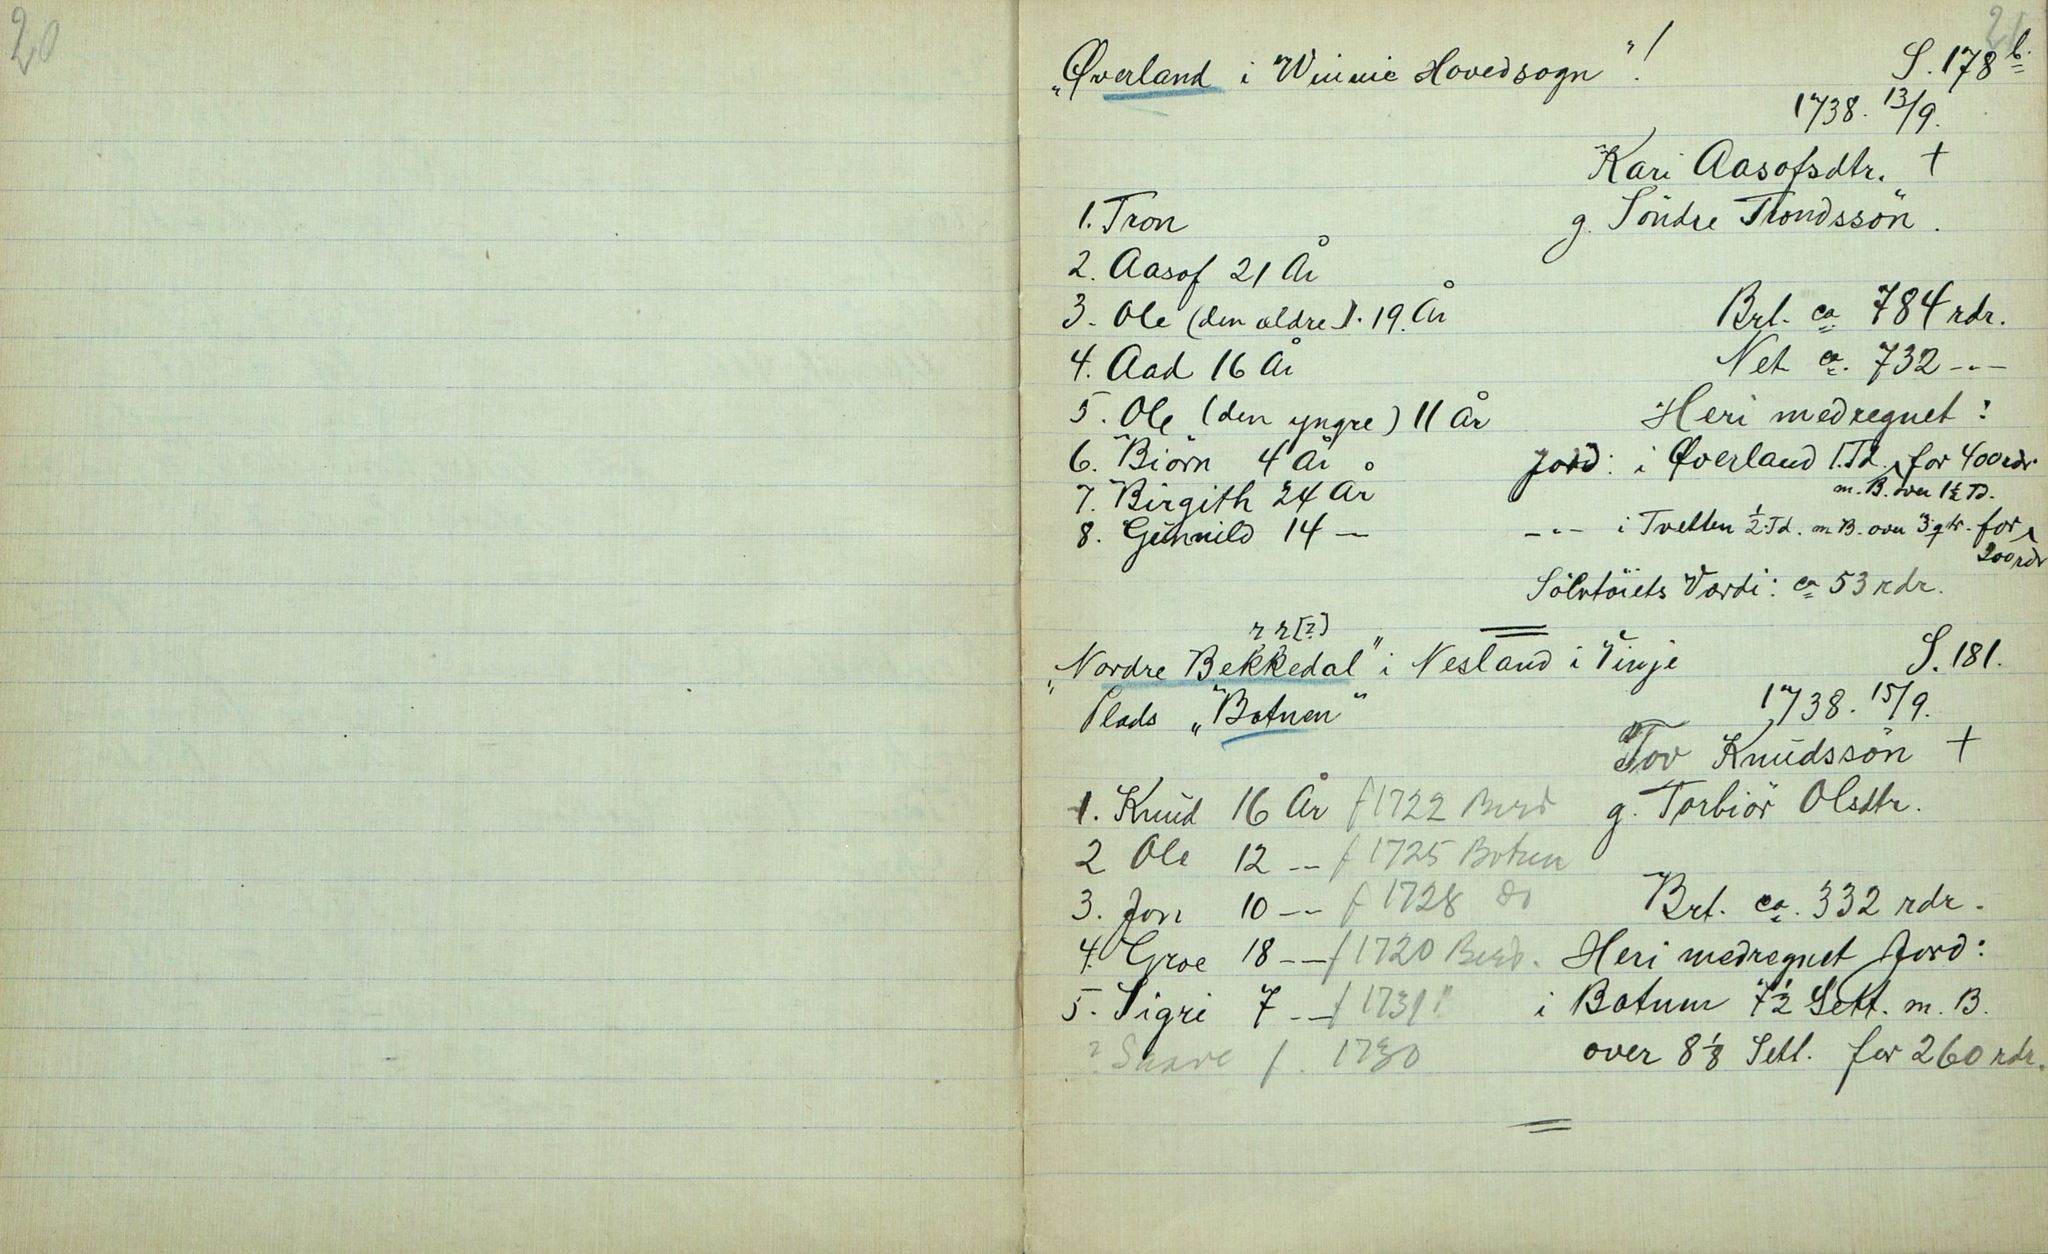 20
21
"Øverland i "Winnie Hovedsogn"! S. 178 b.
1738. 13/9.
Kari Aasofsdtr. †
1. Tron g. Söndre Trondssön.
2. Aasof 21 År
3. Ole (den ældre). 19. År Brt. ca. 784 rdr.
4. Aad 16 År Net ca. 732 -.-
5. Ole (den yngre) 11 År Heri medregnet:
6. Biörn 4 År Jord: i Øverland 1. Td. for 400 rdr.
m. B. over 1½ Td.
7. Birgith 24 År
8. Gunnild 14 — -.- i Tvetten ½ Td. m B. over 3 qtr. for
200 rdr
Sölvtöiets Værdi: ca 53 rdr.
r r [?]
"Nordre Bekkedal" i Nesland i Vinje S. 181.
Plads "Botnen" 1738. 15/9.
Tov Knudssön †
1. Knud 16 År f 1722 g. Torbiör Olsdtr.
2 Ole 12 -- f 1725 Botnen
3. Jon 10 -- f 1728 do Brt. ca. 332 rdr.
4. Groe 18 -- f 1720 Heri medregnet Jord:
5. Sigri 7 -- f 1731 i Botnen 7½ Sett. m. B.
? f. 1730 over 8⅛ Sett. for 260 rdr.